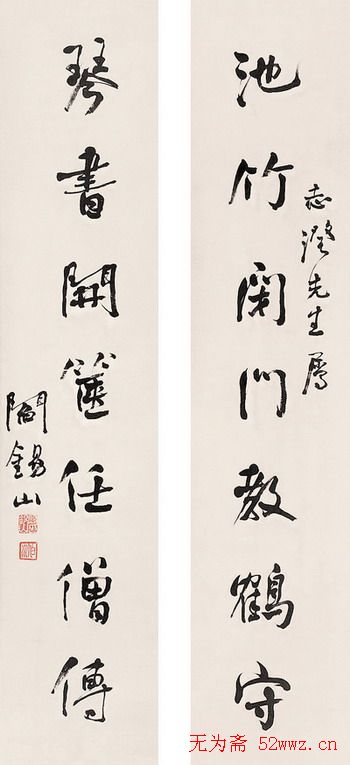 池竹閉門教鶴守
志澄先生屬
琴書開篋任僧傳
閻錫山
无为斋 52wwz.cn